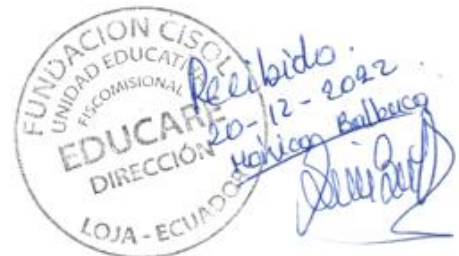 FUNDACION CISOL
UNIDAD EDUCATIVA
FISCOMISIONAL
EDUCARE
DIRECCIÓN
LOJA - ECUADOR
Recibido.
20-12-2022